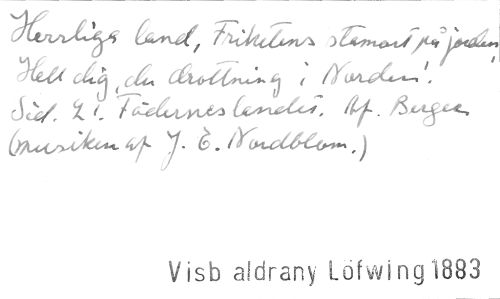 Herrliga land, Frihetens stamort på jorden,
Hell dig, du drottning i Norden!
Sid. 21. Fäderneslandet. Af. Berger
(musiken af J. E. Nordblom.)
Visb aldrany Löfwing 1883